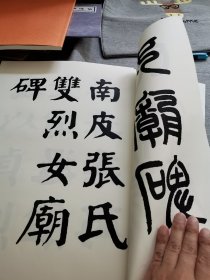 廟碑
南皮張氏
雙烈女廟
碑